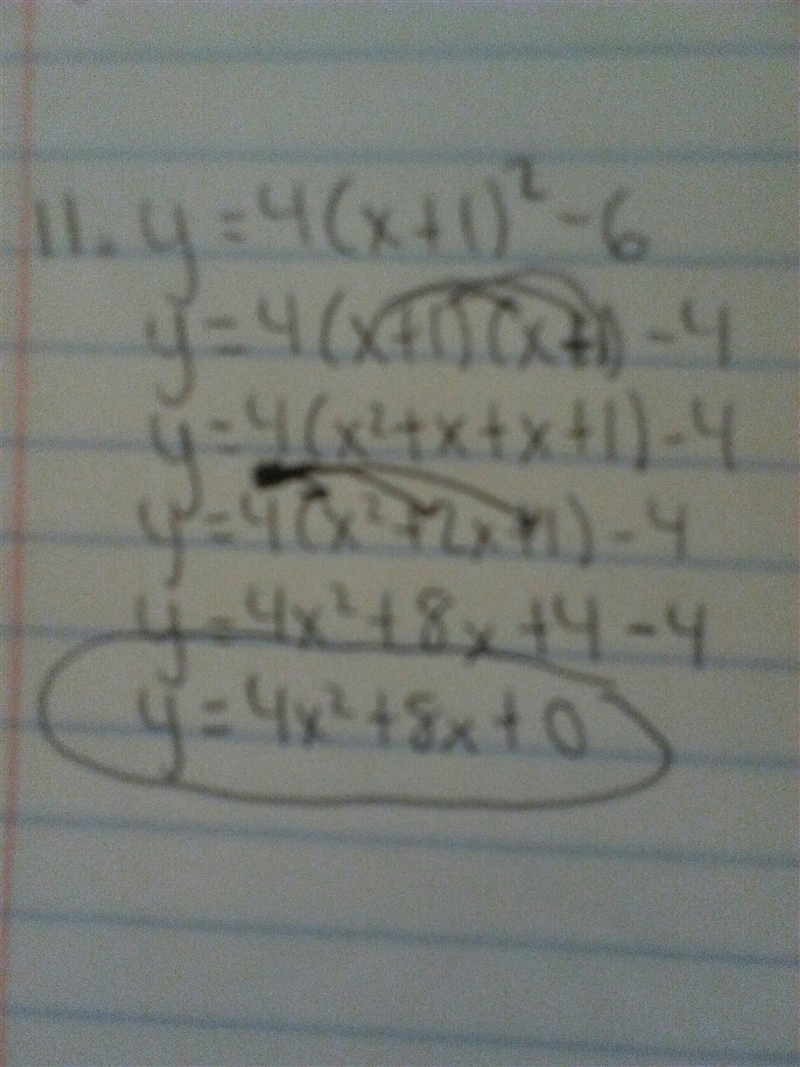 11. y = 4(x+1)² - 6
y = 4(x+1)(x+1) - 4
y = 4(x²+x+x+1) - 4
y = 4(x²+2x+1) - 4
y = 4x²+8x+4 - 4
y = 4x²+8x+0